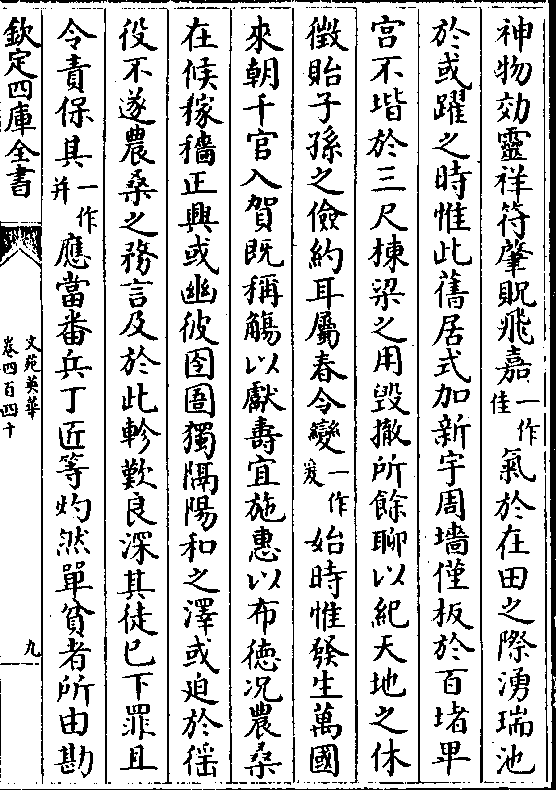 神物効靈祥符肇貺飛嘉一作佳氣於在田之際湧瑞池
於或躍之時惟此舊居式加新宇周墻僅板於百堵卑
宫不堦於三尺棟梁之用毀撤所餘聊以紀天地之休
徵貽子孫之儉約耳屬春令變一作爰始時惟發生萬國
來朝千官入賀既稱觴以獻壽宜施惠以布徳况農桑
在候稼穡正興或幽彼囹圄獨隅陽和之澤或迫於徭
役不遂農桑之務言及於此軫歎良深其徒已下罪且
令責保具一作并應當番兵丁匠等灼然單貧者所由勘
欽定四庫全書
文苑英華
卷四百四十
九